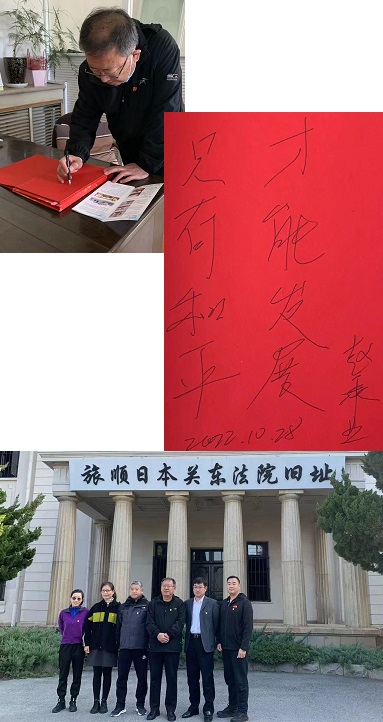 只有和平
才能发展
2022.10.28
旅顺日本关东法院旧址